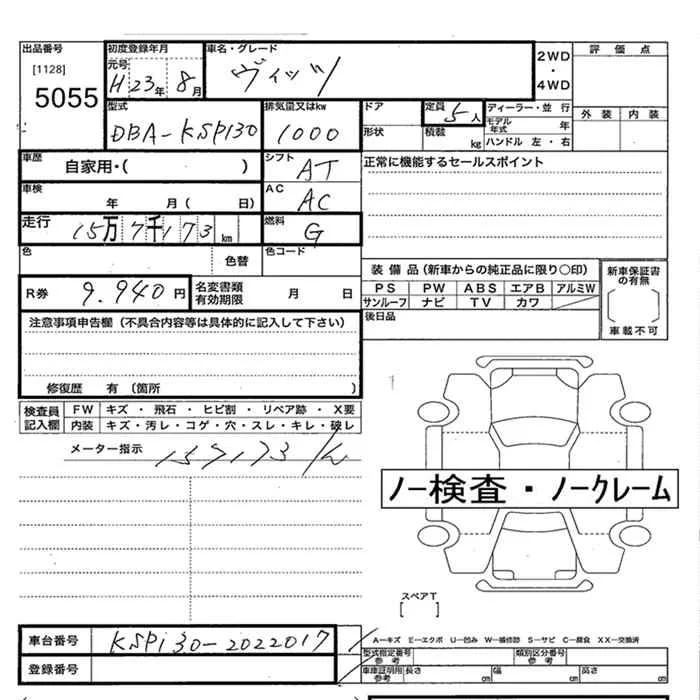 出品番号 初度登録年月 車名・グレード 2WD・4WD 評価点
[1128] 元号 H23年 8月 ヴィッツ
5055 外装 内装
型式 排気量又はkw ドア 定員 5人 ディーラー・並行
DBA-KSP130 1000 形状 積載 kg モデル年式 年
ハンドル 左・右
車歴 自家用・( ) シフト AT 正常に機能するセールスポイント
車検 年 月( 日) AC AC
走行 15万7千173km 燃料 G
色 色替 色コード
装備品(新車からの純正品に限り○印) 新車保証書の有無
R券 9.940円 名変書類有効期限 月 日 PS PW ABS エアB アルミW
サンルーフ ナビ TV カワ 車載不可
注意事項申告欄(不具合内容等は具体的に記入して下さい) 後日品
修復歴 有(箇所 )
検査員記入欄 FW キズ・飛石・ヒビ割・リペア跡・X要
内装 キズ・汚レ・コゲ・穴・スレ・キレ・破レ
メーター指示 157173km
ノー検査・ノークレーム
スペアT
[ ]
車台番号 KSP130-2022017 A−キズ E−エクボ U−凹み W−補修跡 S−サビ C−腐食 XX−交換済
型式指定番号 参考 類別区分番号 参考
登録番号 車庫証明用 参考 長さ cm 幅 cm 高さ cm